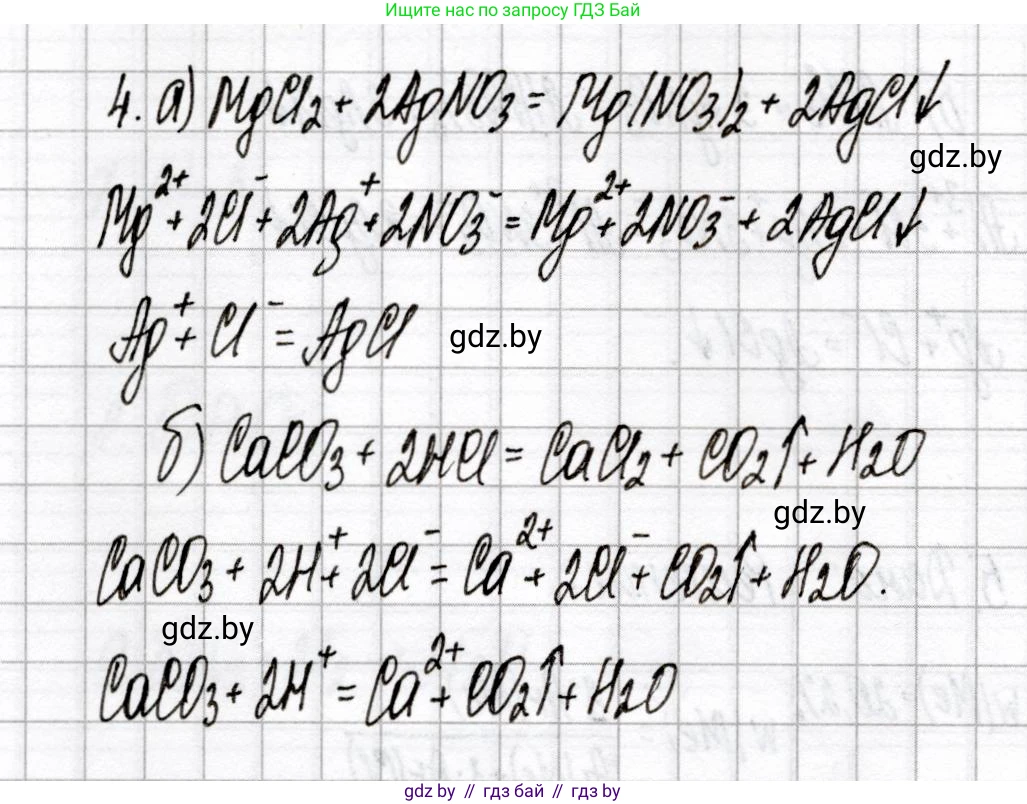 Ищите нас по запросу ГДЗ Бай
4. а) MgCl₂ + 2AgNO₃ = Mg(NO₃)₂ + 2AgCl↓
gdz.by
Mg²⁺ + 2Cl⁻ + 2Ag⁺ + 2NO₃⁻ = Mg²⁺ + 2NO₃⁻ + 2AgCl↓
Ag⁺ + Cl⁻ = AgCl gdz.by
б) CaCO₃ + 2HCl = CaCl₂ + CO₂↑ + H₂O
gdz.by
CaCO₃ + 2H⁺ + 2Cl⁻ = Ca²⁺ + 2Cl⁻ + CO₂↑ + H₂O.
gdz.by
CaCO₃ + 2H⁺ = Ca²⁺ + CO₂↑ + H₂O
gdz by // гдз бай // gdz by